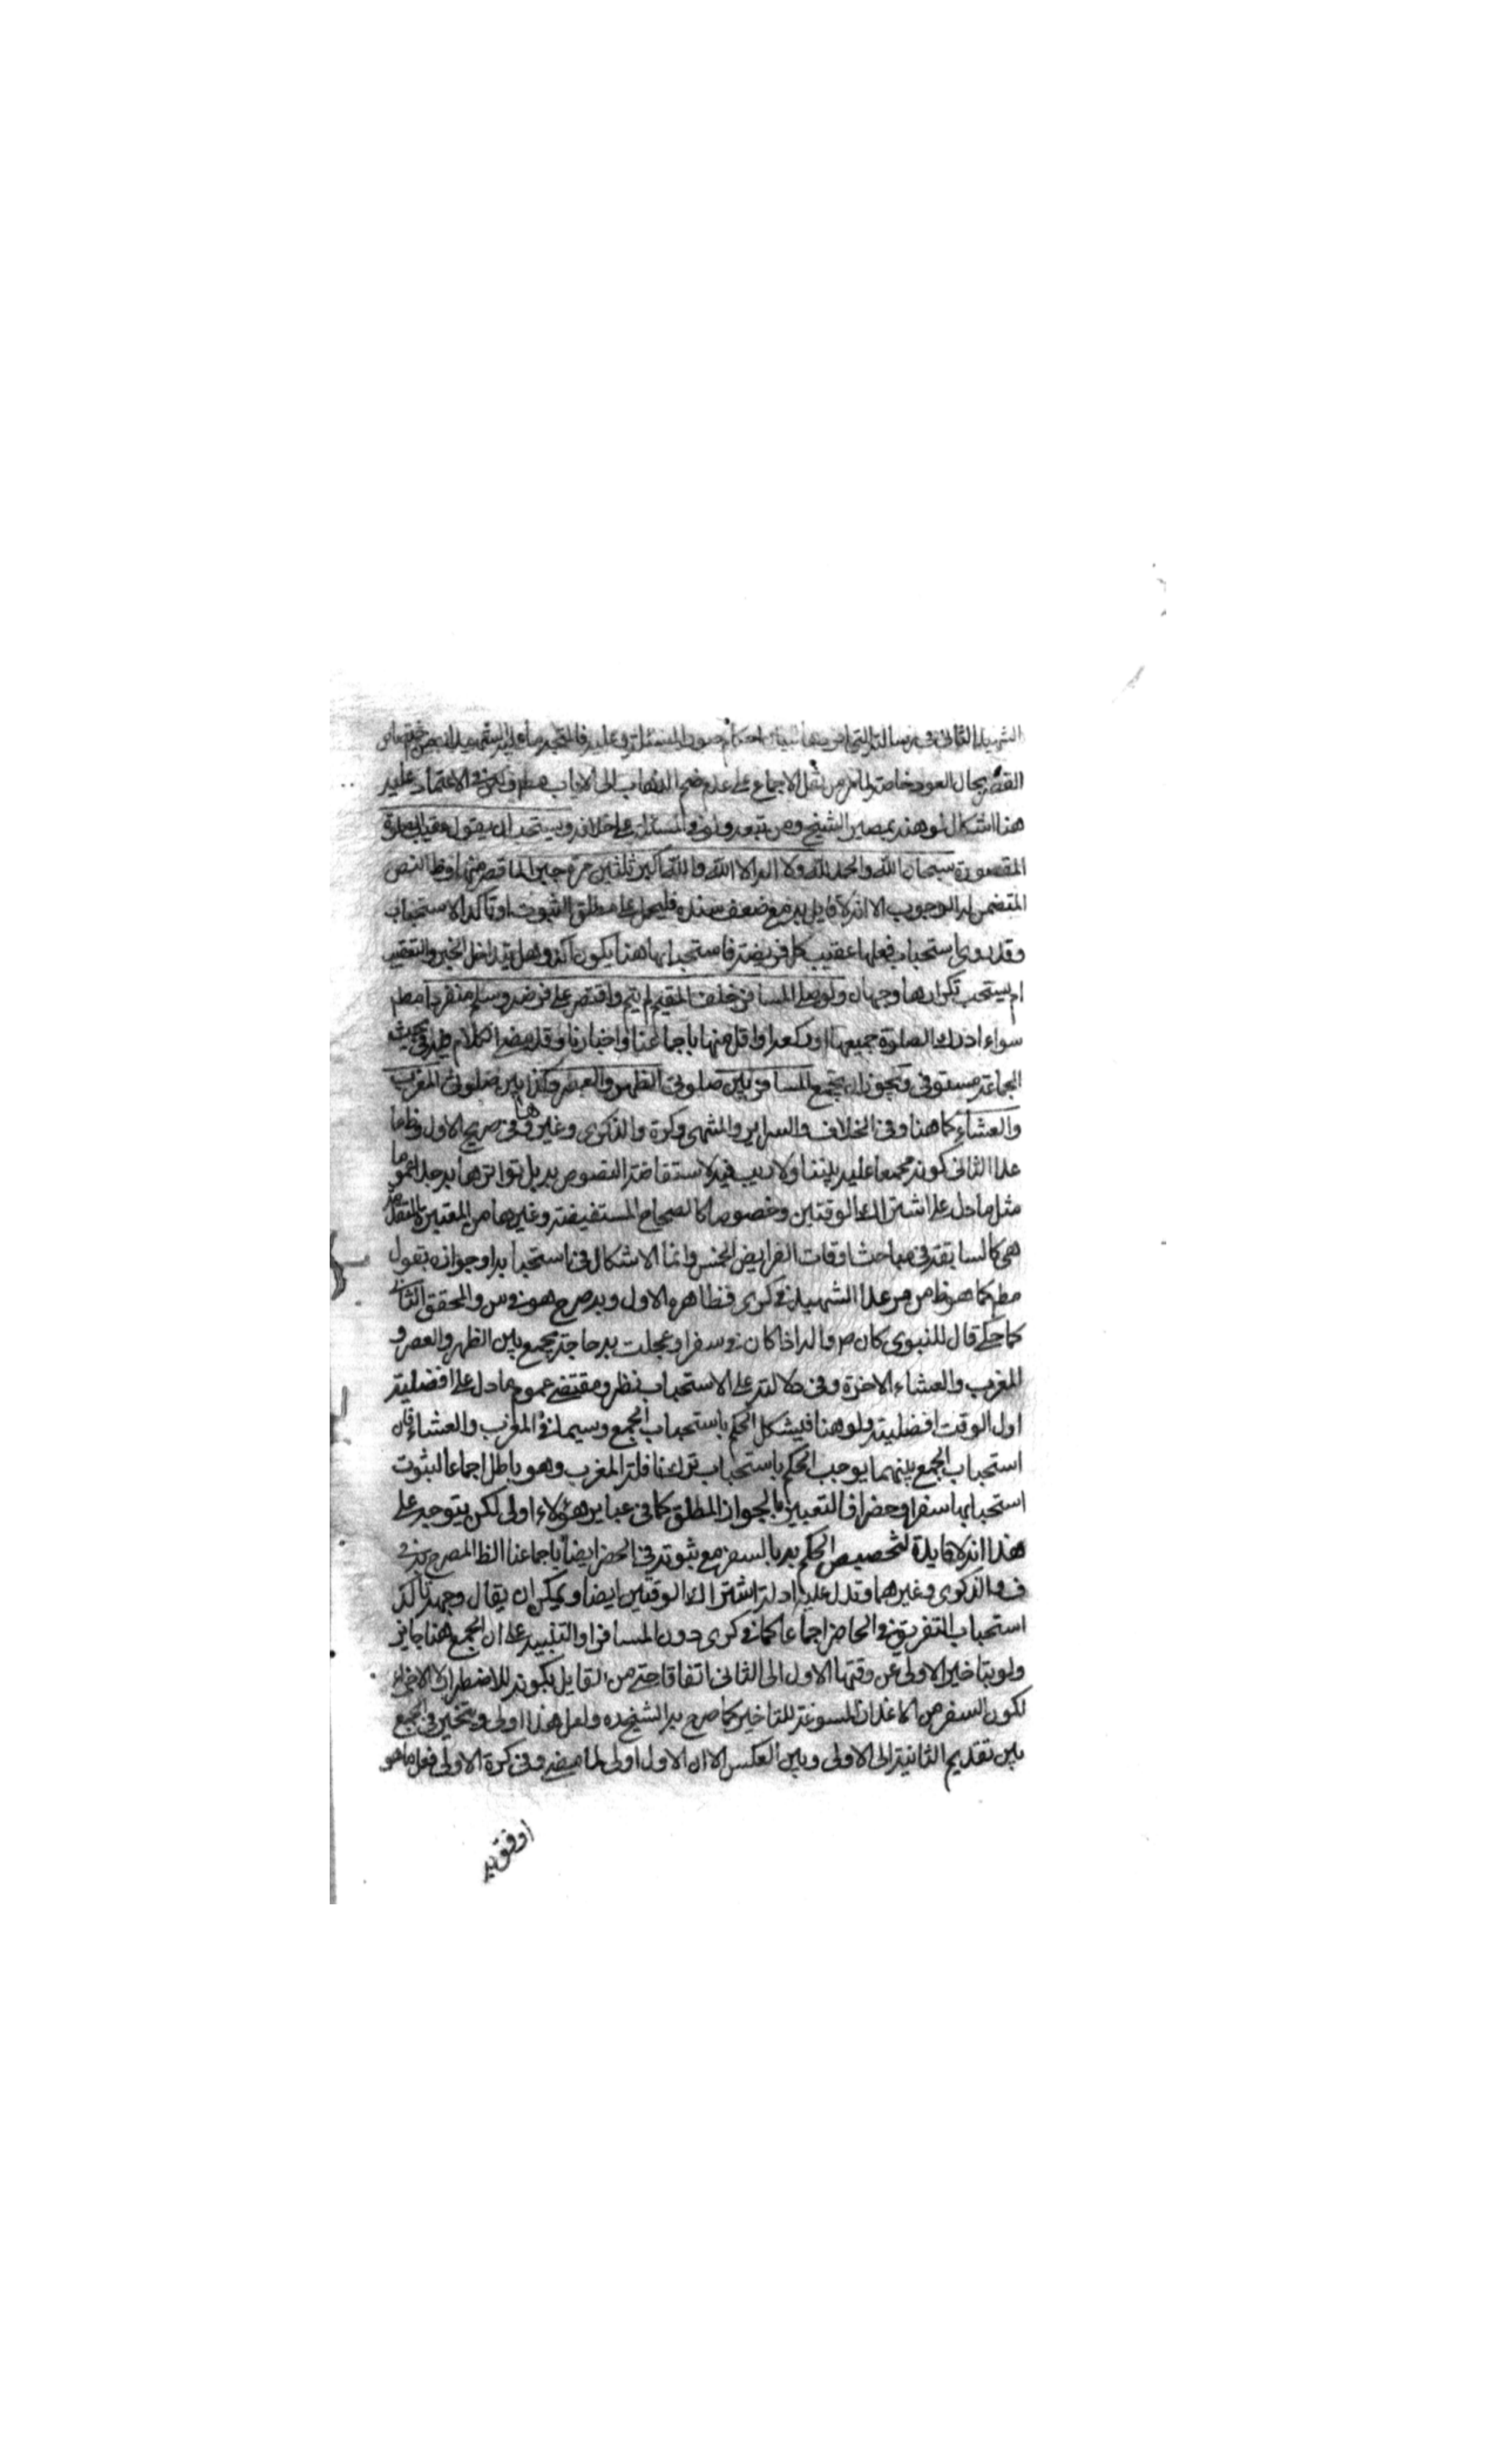 الشهيد الثاني في رسالته التي لبيان احكام المسئلة وعليه
القصر بحال العود خاصة لما مر من نقل الاجماع على عدم ضم الذهاب الى الاياب والاعتماد عليه
هنا اشكال لو هنه بمصير الشيخ ومن تبعه ولو في المسئلة على خلافه ويستحب ان يقول عقيب الصلوة
المقصورة سبحان الله والحمد لله ولا اله الا الله والله اكبر ثلثين مرة جبرا لما قصر منها وظ النص
المتضمن له الوجوب الا انه لا قايل به مع ضعف سنده فليحمل على مطلق الثبوت او تاكد الاستحباب
وقد روى استحباب فعلها عقيب كل فريضة فاستحبابها هنا يكون اكد وهل يتداخل الجبر والتعقيب
ام يستحب تكرارها وجهان ولو صلى المسافر خلف المقيم لم يتم واقتصر على فرضه وسلم منفردا مطم
سواء ادرك الصلوة جميعها او ركعة او اقل منها باجماعنا واخبارنا وقد مضى الكلام فيه في بحث
الجماعة مستوفى ويجوز ان يجمع المسافر بين صلوتي الظهر والعصر وكذا بين صلوتي المغرب
والعشاء كما هنا وفي الخلاف والسراير والمنتهى وكرة والذكرى وغيرها وفي صريح الاول وظ ما
عدا الثاني كونه مجمعا عليه بيننا ولا ريب فيه لاستفاضة النصوص به بل تواترها به جدا عموما
مثل ما دل على اشتراك الوقتين وخصوصا كالصحاح المستفيضة وغيرها من المعتبرة المتقدمة
هي كالسابقة في مباحث اوقات الفرايض الخمس وانما الاشكال في استحبابه او جوازه بقول
مطم كما هو ظ من مر عدا الشهيد في كرى فظاهره الاول وبه صرح هو في س والمحقق الثاني
كما حكى قال للنبوي كان ص واله اذا كان في سفر او عجلت به حاجة يجمع بين الظهر والعصر و
المغرب والعشاء الاخرة وفي دلالته على الاستحباب نظر ومقتضى عموم ما دل على افضلية
اول الوقت افضليته ولو هنا فيشكل الحكم باستحباب الجمع وسيما في المغرب والعشاء فان
استحباب الجمع بينهما يوجب الحكم باستحباب ترك نافلة المغرب وهو باطل اجماعا لثبوت
استحبابها سفرا وحضرا فالتعبير بالجواز المطلق كما في عباير هؤلاء اولى لكن يتوجه على
هذا انه لا فايدة لتخصيص الحكم به بالسفر مع ثبوته في الحضر ايضا باجماعنا الظ المصرح به في
ف والذكرى وغيرهما وتدل عليه ادلة اشتراك الوقتين ايضا ويمكن ان يقال وجهه تاكد
استحباب التفريق في الحاضر اجماعا كما في كرى دون المسافر او التنبيه على ان الجمع هنا جايز
ولو بتاخير الاولى عن وقتها الاول الى الثاني اتفاقا حتى من القايل بكونه للاضطرار لا الاختيار
لكون السفر من الاعذار المسوغة للتاخير كما صرح به الشيخ ره ولعل هذا اولى ويتخير في الجمع
بين تقديم الثانية الى الاولى وبين العكس الا ان الاول اولى لما مضى وفي كرة الاولى فعل ما هو
اوفق به